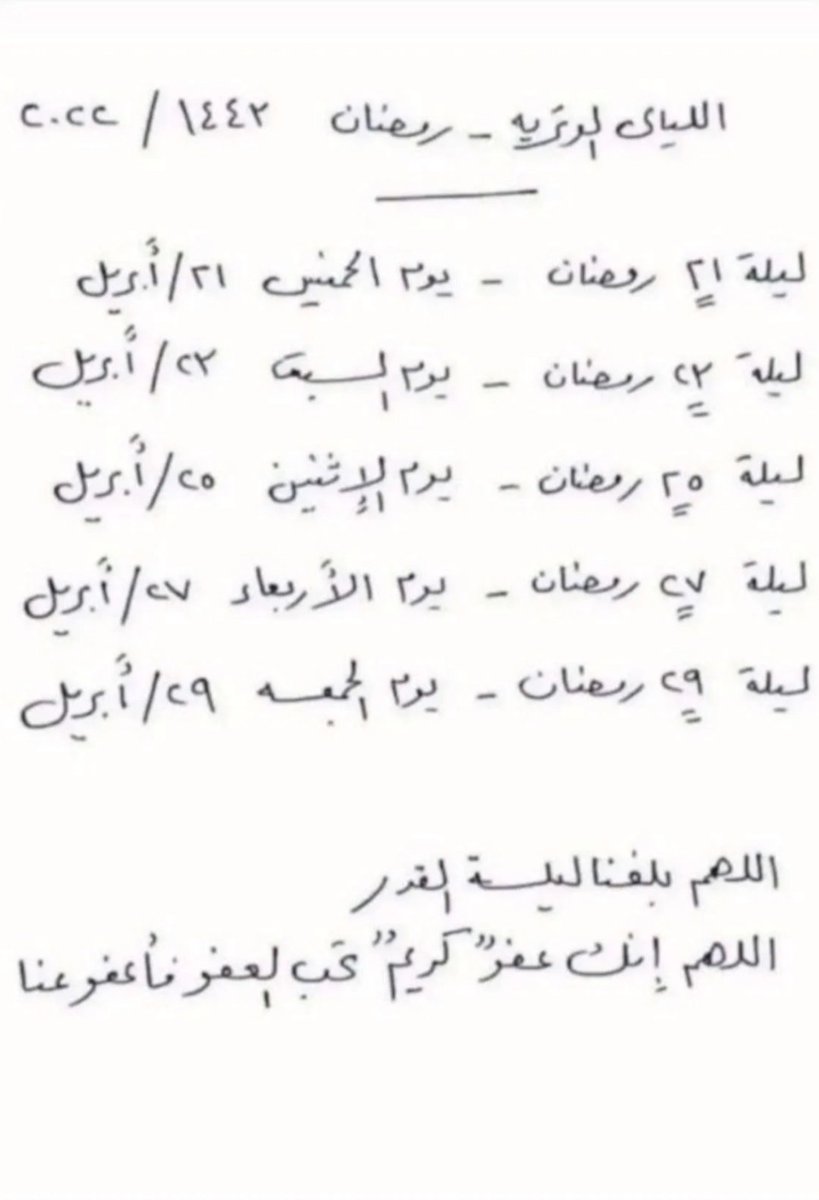 الليالي الوتريه - رمضان ١٤٤٣ / ٢٠٢٢
ليلة ٢١ رمضان - يوم الخميس ٢١/أبريل
ليلة ٢٣ رمضان - يوم السبت ٢٣/أبريل
ليلة ٢٥ رمضان - يوم الإثنين ٢٥/أبريل
ليلة ٢٧ رمضان - يوم الأربعاء ٢٧/أبريل
ليلة ٢٩ رمضان - يوم الجمعه ٢٩/أبريل
اللهم بلغنا ليلة القدر
اللهم إنك عفوٌ كريمٌ تحب العفو فأعفو عنا